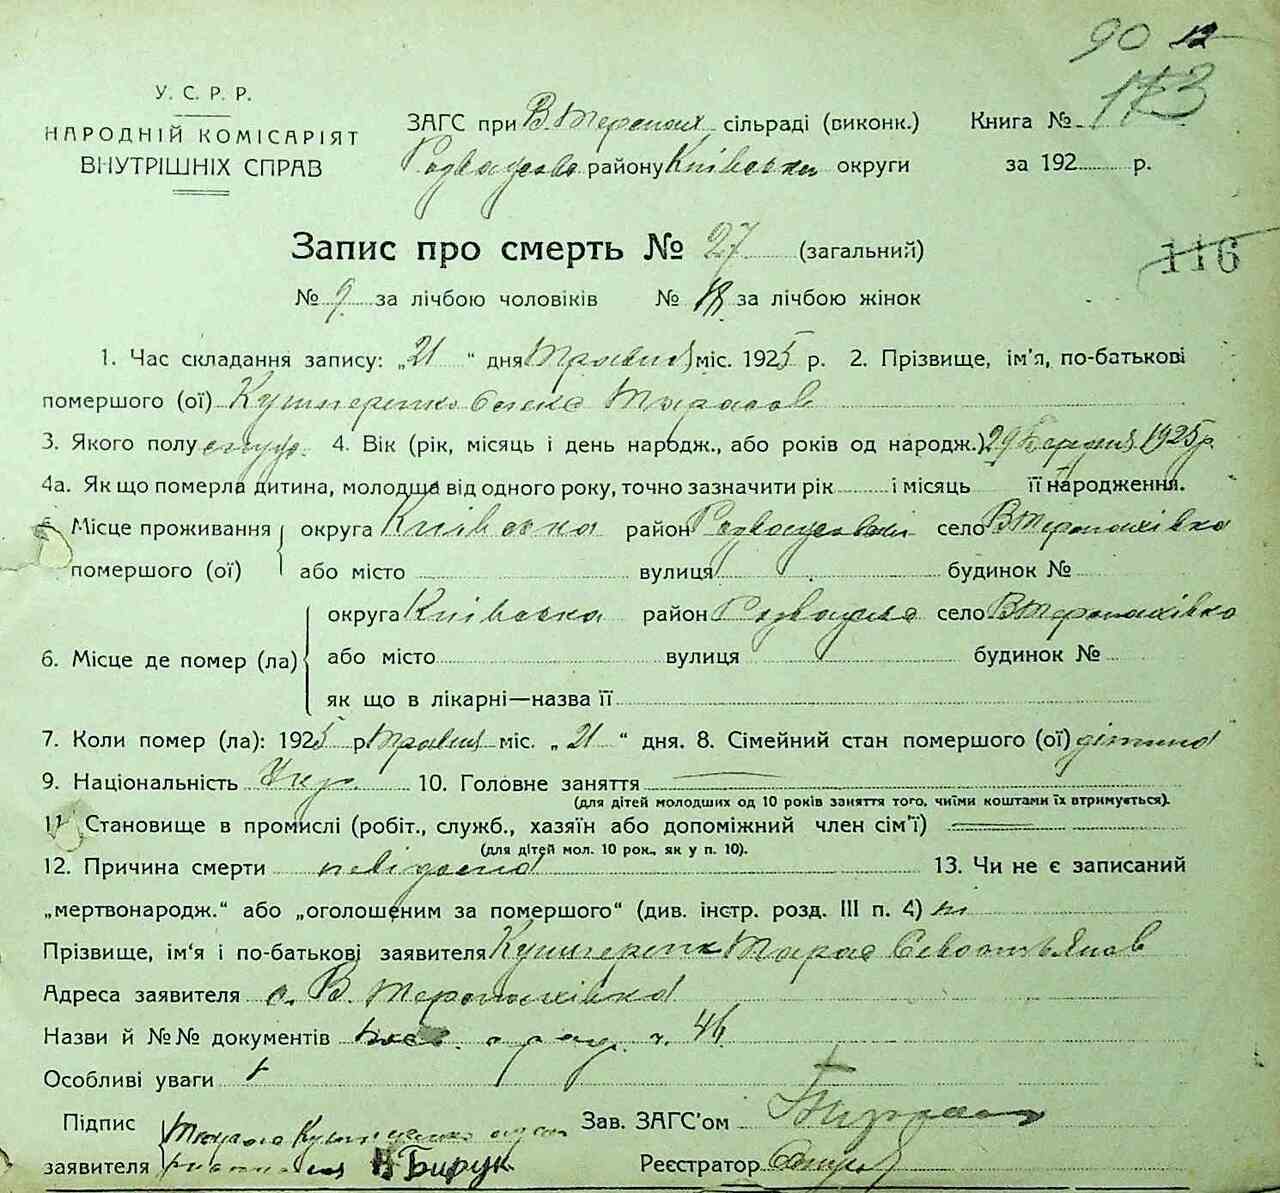 90 12
173
У. С. Р. Р.
НАРОДНІЙ КОМІСАРІЯТ
ВНУТРІШНІХ СПРАВ
ЗАГС при В. Терепах. сільраді (виконк.) Книга №
району Київська округи за 192 р.
Запис про смерть № 27 (загальний)
116
№ 9 за лічбою чоловіків № 18 за лічбою жінок
1. Час складання запису: „21“ дня Травня міс. 1925 р. 2. Прізвище, ім'я, по-батькові
помершого (ої) Кушнеренко Тарасов
3. Якого полу 4. Вік (рік, місяць і день народж., або років од народж.) 29 Березня 1925 р.
4а. Як що померла дитина, молодша від одного року, точно зазначити рік і місяць її народження.
5 Місце проживання округа Київська район село
помершого (ої) або місто вулиця будинок №
округа Київська район село
6. Місце де помер (ла) або місто вулиця будинок №
як що в лікарні—назва її
7. Коли помер (ла): 1925 р. Травня міс. „21“ дня. 8. Сімейний стан помершого (ої) дитина
9. Національність Укр. 10. Головне заняття
(для дітей молодших од 10 років заняття того, чиїми коштами їх втримується).
11. Становище в промислі (робіт., служб., хазяїн або допоміжний член сім'ї)
(для дітей мол. 10 рок., як у п. 10).
12. Причина смерти невідома 13. Чи не є записаний
„мертвонародж.“ або „оголошеним за помершого“ (див. інстр. розд. III п. 4) ні
Прізвище, ім'я і по-батькові заявителя Тарас Севостьянов
Адреса заявителя с. В.
Назви й №№ документів ч. 46
Особливі уваги
Підпис Зав. ЗАГС'ом
заявителя Бирук Реєстратор